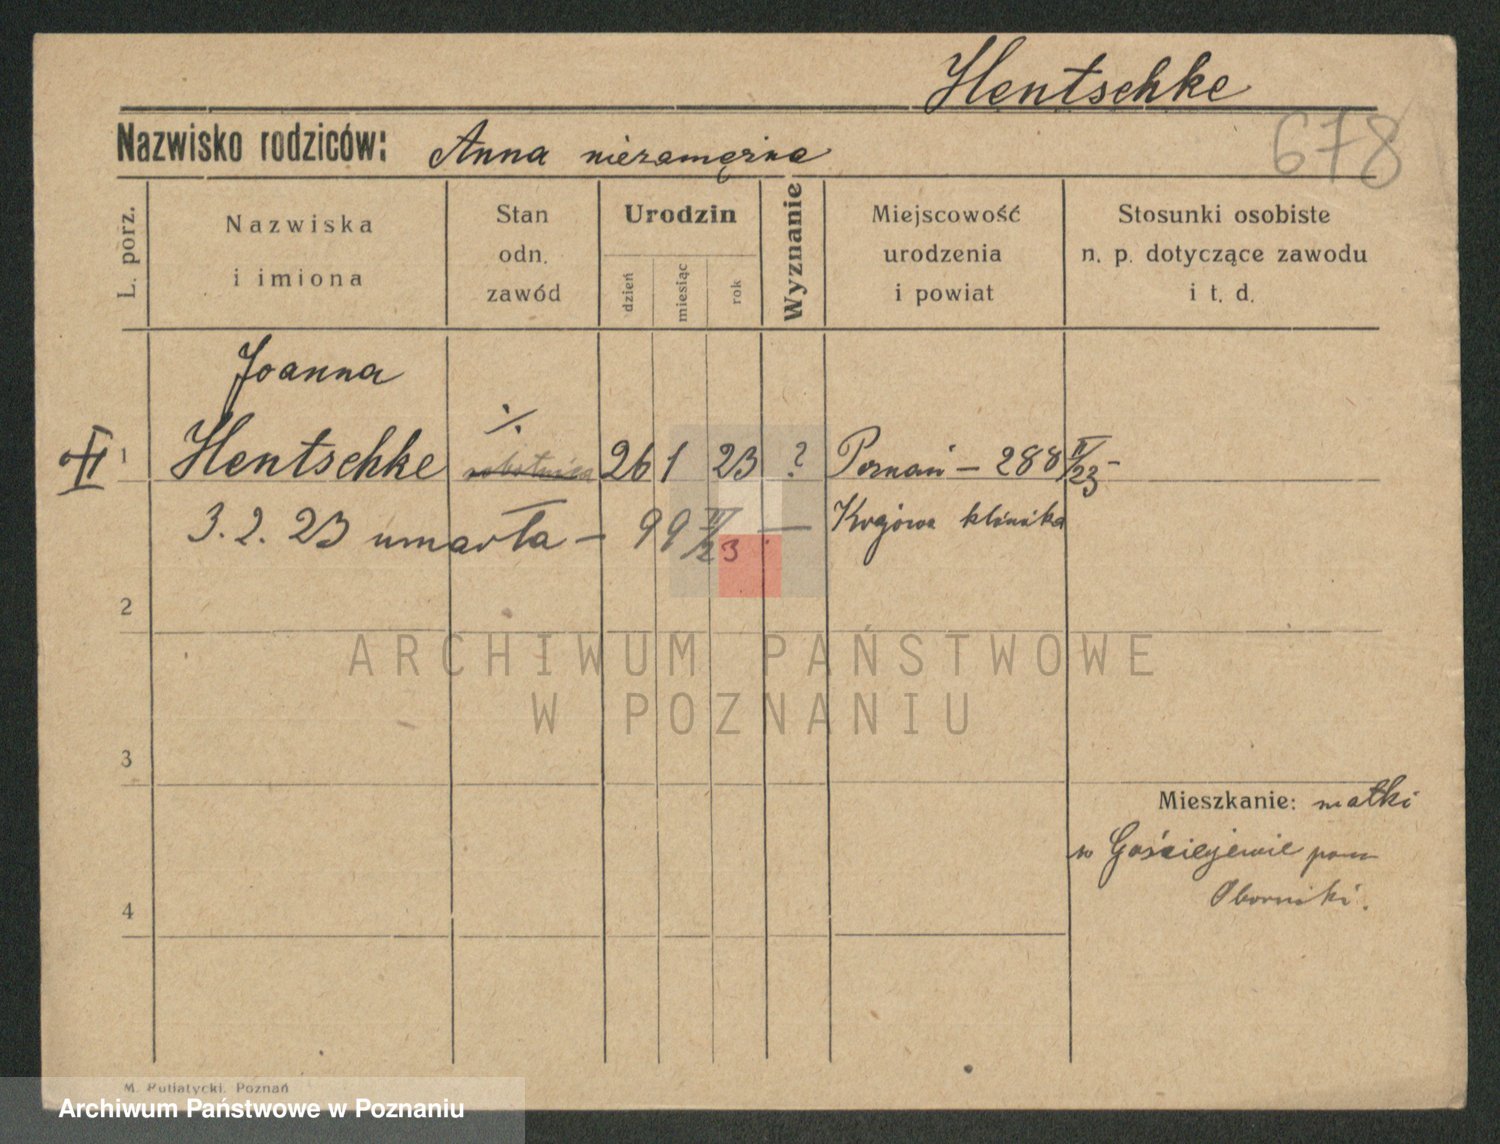 Hentschke
Nazwisko rodziców: Anna niezamężna
678
L. porz.
Nazwiska i imiona
Stan odn. zawód
Urodzin
dzień
miesiąc
rok
Wyznanie
Miejscowość urodzenia i powiat
Stosunki osobiste n. p. dotyczące zawodu i t. d.
Joanna
1 Hentschke ./. robotnica 26 1 23 ? Poznań – 288 II/23 –
3. 2. 23 umarła – 99 II/23 – Krajowa klinika
2
3
4
Mieszkanie: matki
w Gościejewie pow
Oborniki.
ARCHIWUM PAŃSTWOWE
W POZNANIU
M. Putiatycki, Poznań
Archiwum Państwowe w Poznaniu